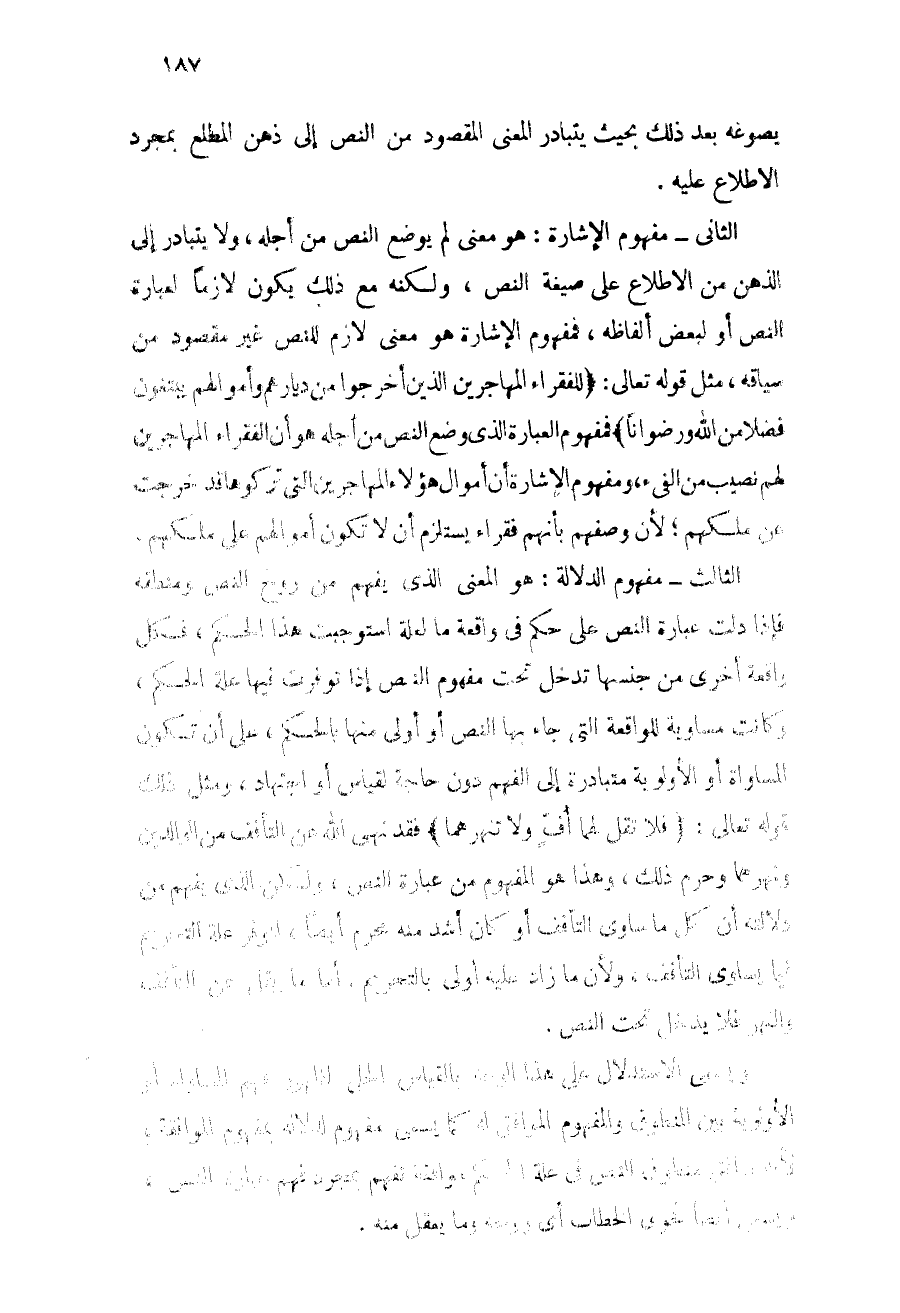 ١٨٧
يصوغه بعد ذلك بحيث يتبادر المعنى المقصود من النص إلى ذهن المطلع بمجرد
الاطلاع عليه .
الثانى – مفهوم الإشارة : هو معنى لم يوضع النص من أجله ، ولا يتبادر إلى
الذهن من الاطلاع على صيغة النص ، ولكنه مع ذلك يكون لازماً لعبارة
النص أو لبعض ألفاظه ، فمفهوم الإشارة هو معنى لازم للنص غير مقصود من
سياقه ، مثل قوله تعالى : ﴿ للفقراء المهاجرين الذين أخرجوا من ديارهم وأموالهم يبتغون
فضلا من الله ورضواناً ﴾ فمفهوم العبارة الذى وضع النص من أجله هو أن الفقراء المهاجرين
لهم نصيب من الفىء ، ومفهوم الإشارة أن أموال هؤلاء المهاجرين التى تركوها قد خرجت
عن ملكهم ؛ لأن وصفهم بأنهم فقراء يستلزم أن لا تكون أموالهم على ملكهم .
الثالث – مفهوم الدلالة : هو المعنى الذى يفهم من روح النص ومنطقه
فإذا دلت عبارة النص على حكم فى واقعة ما لعلة استوجبت هذا الحكم ، فكل
واقعة أخرى من جنسها تدخل تحت مفهوم النص إذا توفرت فيها علة الحكم ،
وكانت مساوية للواقعة التى جاء بها النص أو أولى منها بالحكم ، على أن تكون
المساواة أو الأولوية متبادرة إلى الفهم دون حاجة لقياس أو اجتهاد ، ومثل ذلك
قوله تعالى : ﴿ فلا تقل لهما أُفّ ولا تنهرهما ﴾ فقد نهى الله عن التأفف من الوالدين
ونهرهما وحرم ذلك ، وهذا هو المفهوم من عبارة النص ، ولكن الذى يفهم من
دلالته أن كل ما ساوى التأفف أو كان أشد منه محرم أيضاً ، لتوفر علة التحريم
فيما يساوى التأفف ، ولأن ما زاد عليه أولى بالتحريم . أما ما يقل عن التأفف
والنهر فلا يدخل تحت النص .
ويسمى الاستدلال على هذا الوجه بالقياس الجلى فهم المساواة أو
الأولوية بين المنطوق والمفهوم الموافق له كما يسمى مفهوم الدلالة بمفهوم الموافقة ،
منطوق النص فى علة موافقة تفهم بمجرد فهم عبارة النص ،
ويسمى أيضاً فحوى الخطاب أى روحه وما يعقل منه .